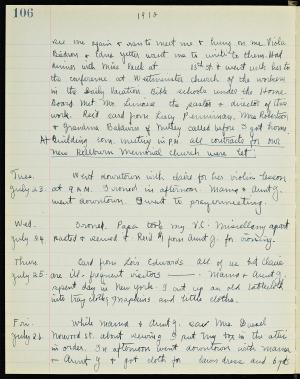 106
1918
see me again & wants me to meet me & hung on me. Viola
& Jane yetter want me to write to them. Had
dinner with Miss Peck at 13th St & went with her to
the conference at Westminster church of the workers
in the Daily Vacation Bible schools under the Home
Board Met Mr. the pastor & director of this
work. Rec'd card from Lucy Penniman. Mrs Robertson
& Grandma Baldwin of Nutley called before I got home
At Building com. meeting in P.M. all contracts for our
new Kilburn Memorial church were let.
Tues.
July 23.
Went downtown with Claire for her violin lesson
at 9 A.M. I ironed in afternoon. Mama & Aunt G.
went downtown. I went to prayermeeting.
Wed.
July 24
Ironed. Papa took my V.C. Miscellany apart
pasted & sewed & Rec'd $1 from Aunt G. for ironing.
Thurs
July 25.
Card from Lois Edwards All of us but Claire
are ill. frequent visitors Mama & Aunt G.
spent day in New York. I cut up an old tablecloth
into tray cloths, napkins and little cloths.
Fri.
July 26
While Mama & Aunt G. saw Mrs
Norwood St. about sewing I put my box in the attic
in order. In afternoon went downtown with Mama
& Aunt G & got cloth for dress and